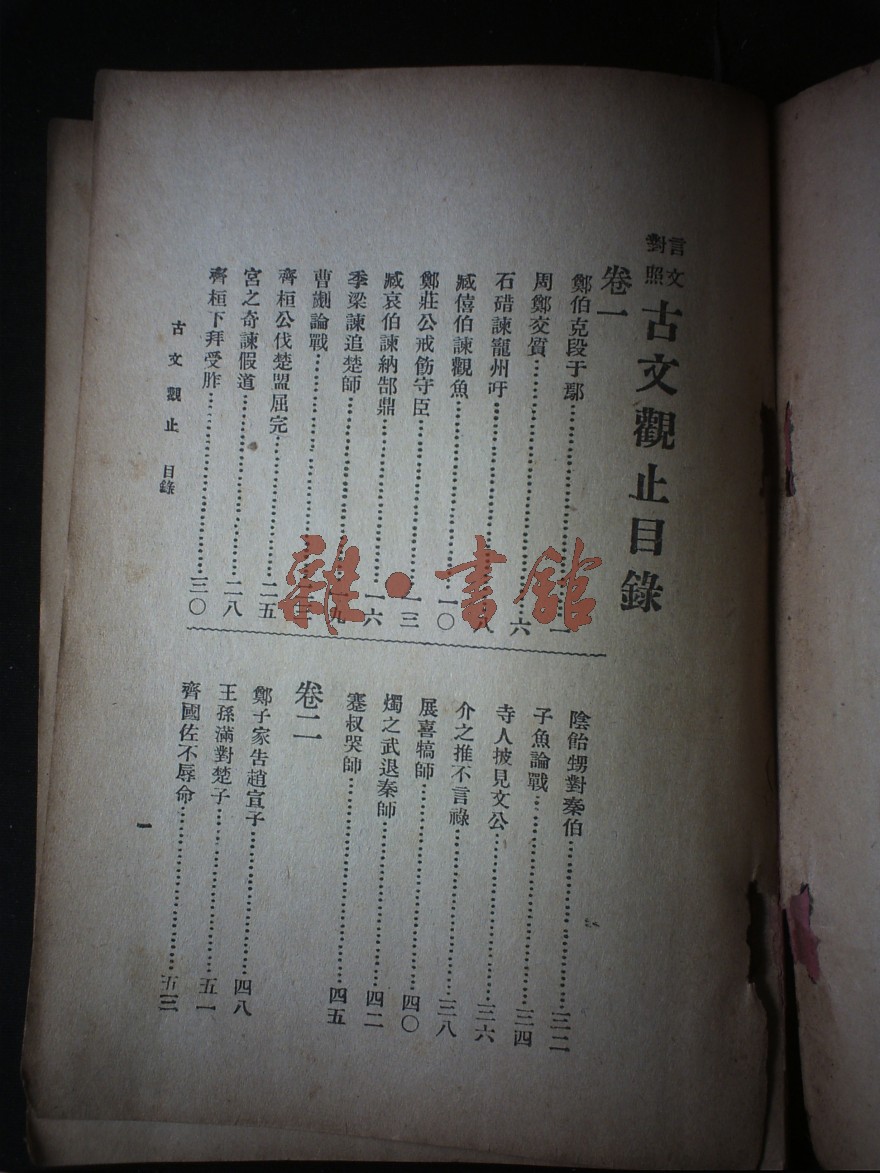 言文對照 古文觀止目錄
卷一
鄭伯克段于鄢 一
周鄭交質 六
石碏諫寵州吁 八
臧僖伯諫觀魚 一〇
鄭莊公戒飭守臣 一三
臧哀伯諫納郜鼎 一六
季梁諫追楚師 一九
曹劌論戰
齊桓公伐楚盟屈完 二五
宮之奇諫假道 二八
齊桓下拜受胙 三〇
陰飴甥對秦伯 三二
子魚論戰 三四
寺人披見文公 三六
介之推不言祿 三八
展喜犒師 四〇
燭之武退秦師 四二
蹇叔哭師 四五
卷二
鄭子家告趙宣子 四八
王孫滿對楚子 五一
齊國佐不辱命 五三
古文觀止 目錄
一
雜·書館